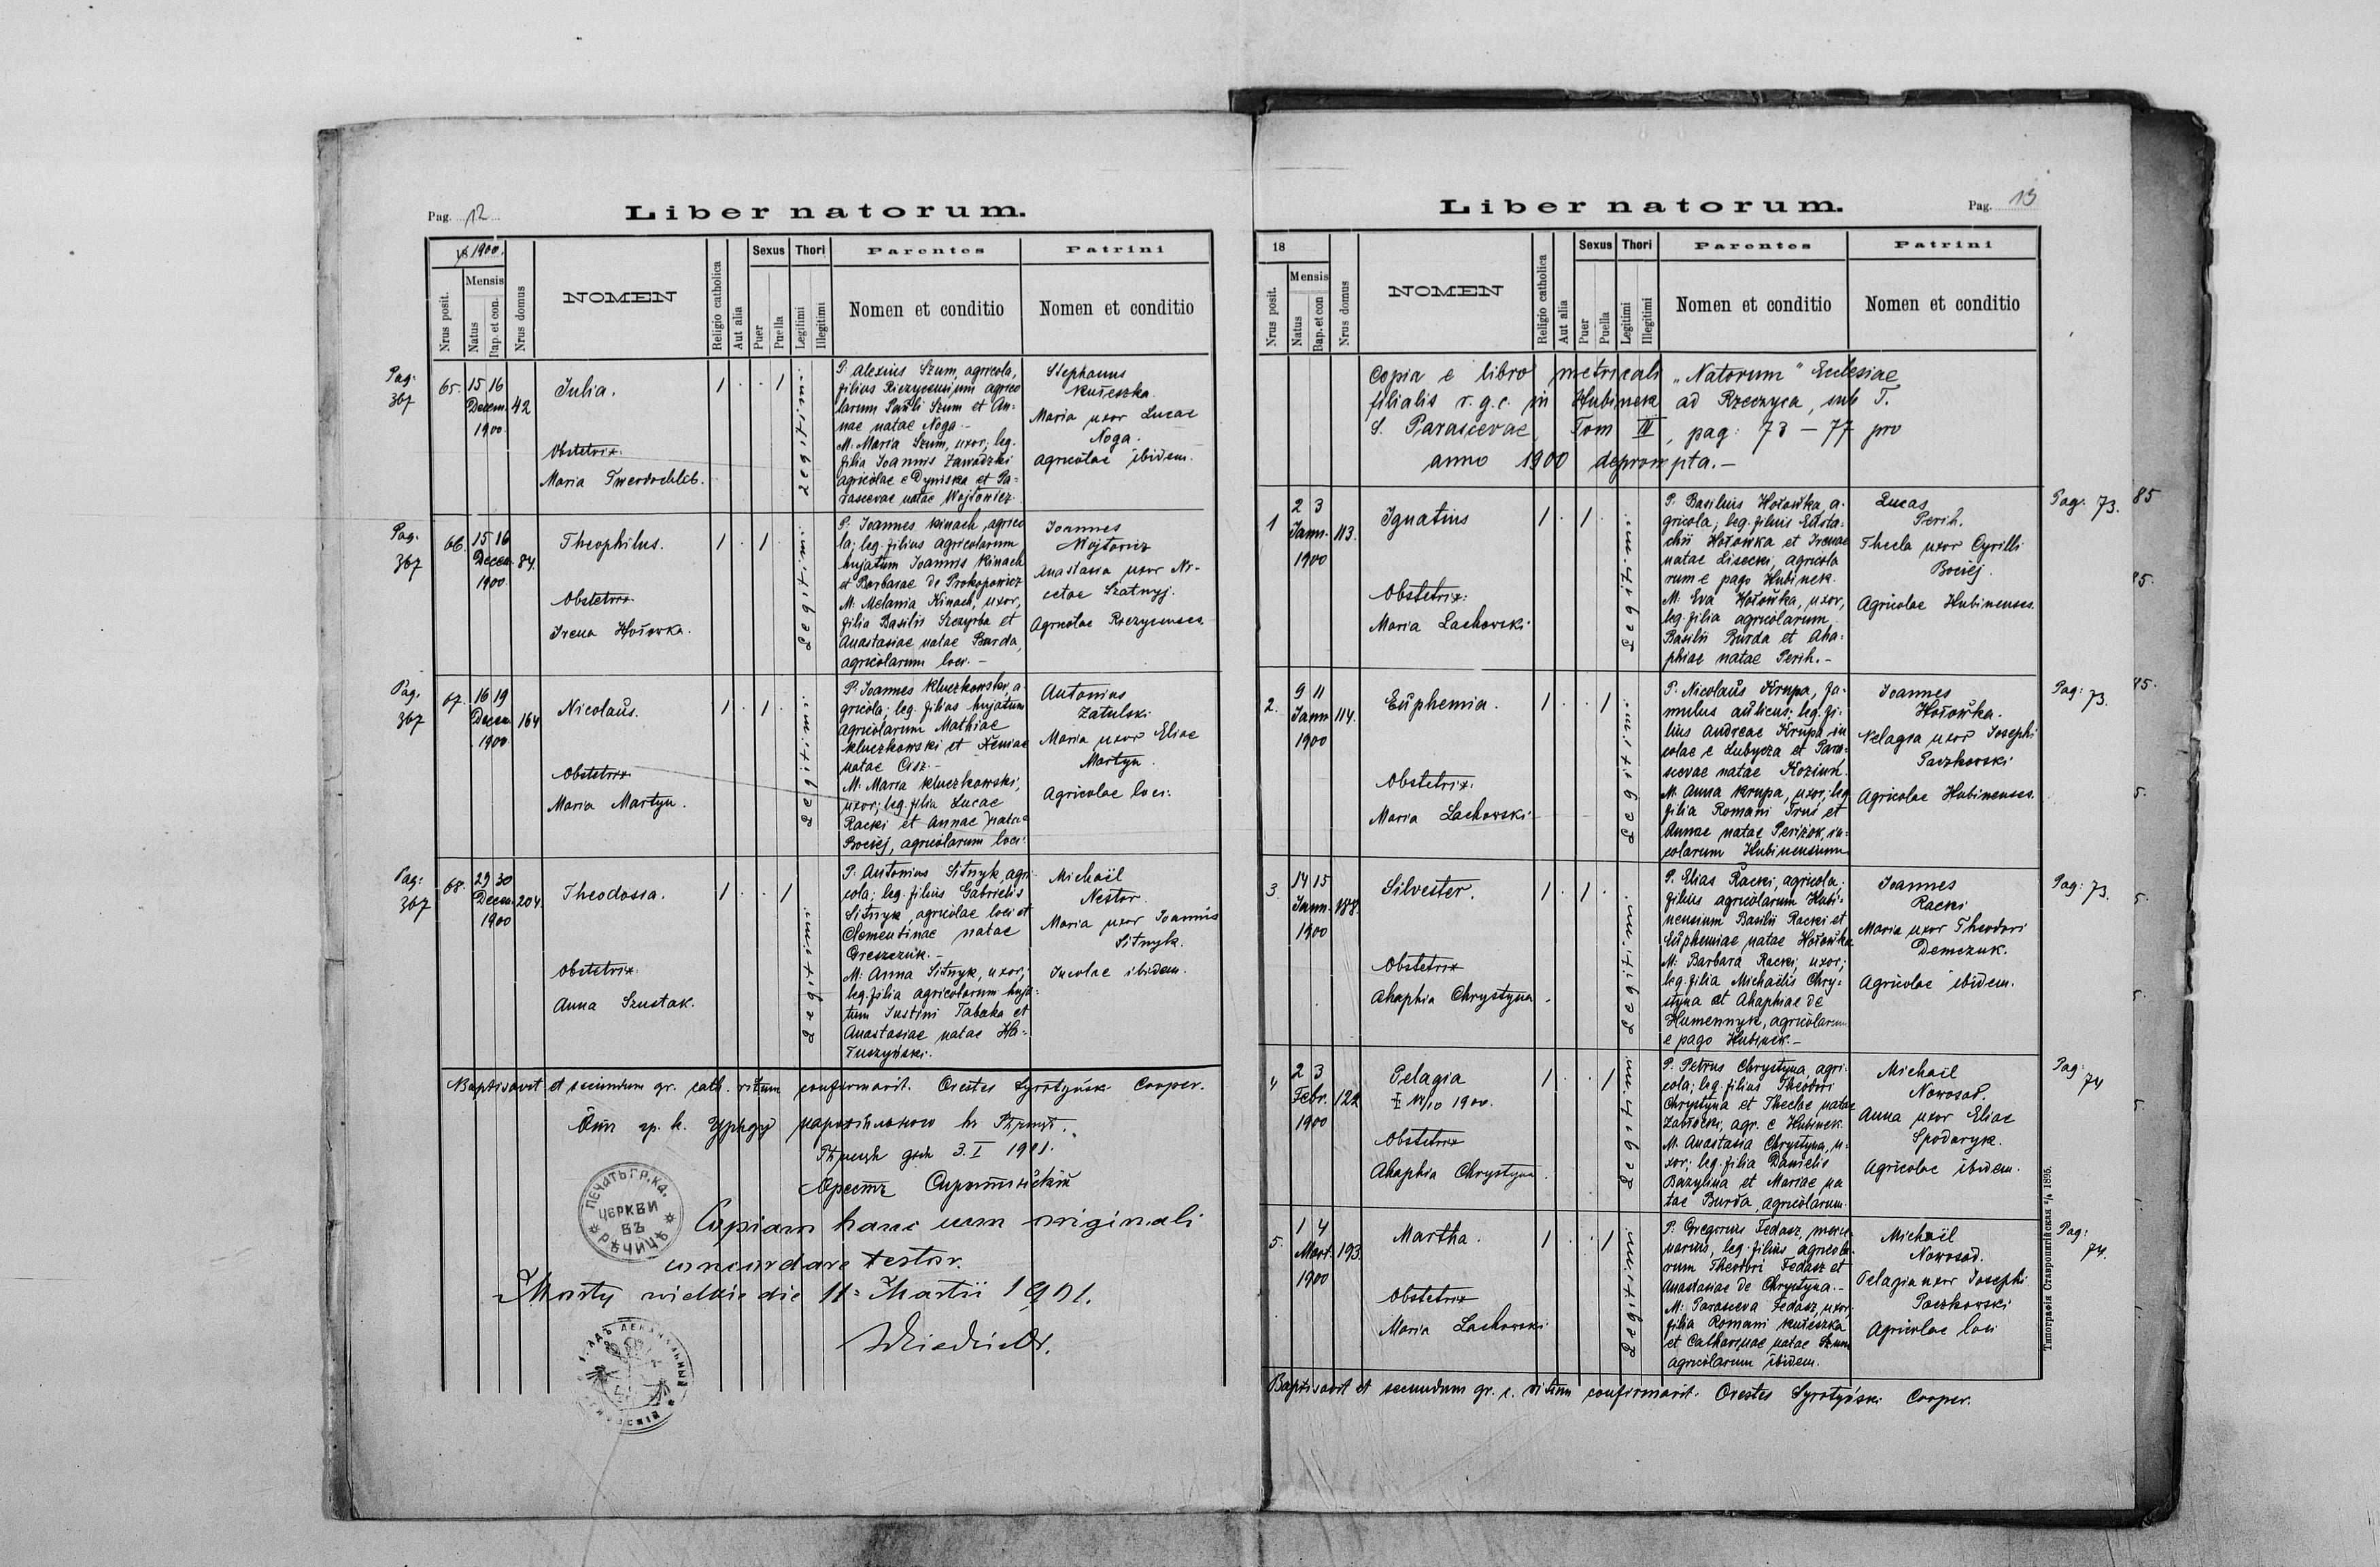 Pag. 12
Liber natorum.
18 1900.
Nrus posit.
Mensis
Natus
Bap. et con.
Nrus domus
NOMEN
Religio catholica
Aut alia
Sexus
Puer
Puella
Thori
Legitimi
Illegitimi
Parentes
Nomen et conditio
Patrini
Nomen et conditio
Pag. 367
65.
15 16
Decem.
1900
42
Julia.
Obstetrix:
Maria Twerdochlib.
1 . . 1
Legitimi
P. Alexius Szum, agricola,
filius Rzeczycensium agrico
larum Pauli Szum et An-
nae natae Noga.-
M. Maria Szum, uxor; leg.
filia Joannis Zawadzki
agricolae e Dyniska et Pa-
rascevae natae Wojtowicz.
Stephanus
Kułeszka.
Maria uxor Lucae
Noga.
agricolae ibidem.
Pag. 367
66.
15 16
Decem.
1900
84.
Theophilus.
Obstetrix
Irena Hołowka.
1 . 1 .
Legitimi
P. Joannes Kinach, agrico
la; leg. filius agricolarum
hujatum Joannis Kinach
et Barbarae de Prokopowicz
M. Melania Kinach, uxor,
filia Basilii Szczyrba et
Anastasiae natae Burda,
agricolarum loci.-
Joannes
Wojtowicz
Anastasia uxor Ni-
cetae Szatnyj.
Agricolae Rzeczycenses
Pag. 367
67.
16 19
Decem
1900
164
Nicolaus.
Obstetrix
Maria Martyn.
1 . 1 .
Legitimi
P. Joannes Kluczkowski, a-
gricola; leg. filius hujatum
agricolarum Mathiae
Kluczkowski et Xeniae
natae Cisz.-
M. Maria Kluczkowski,
uxor; leg. filia Lucae
Racki et Annae natae
Bociej, agricolarum loci.
Antonius
Zatulski
Maria uxor Eliae
Martyn.
Agricolae loci.
Pag: 367
68.
29 30
Decem.
1900
204.
Theodosia.
Obstetrix
Anna Szustak.
1 . . 1
Legitimi
P. Antonius Sitnyk, agri
cola; leg. filius Gabrielis
Sitnyk, agricolae loci et
Clementinae natae
Greszczuk.-
M. Anna Sitnyk, uxor;
leg. filia agricolarum huja-
tum Justini Tabaka et
Anastasiae natae Ha-
łuszyński.
Michaël
Nestor
Maria uxor Joannis
Sitnyk.
Incolae ibidem.
Baptisavit et secundum gr. cath. ritum confirmavit. Orestes Syrotyński Cooper.
3. I 1901.
ПЕЧАТЬ ГР. КА. ЦЕРКВИ ВЪ РѢЧИЦѢ
Copiam hanc cum originali
concordare testor.
Mosty wielkie die 11 Martii 1901.
Pag. 13
Liber natorum.
18
Nrus posit.
Mensis
Natus
Bap. et con
Nrus domus
NOMEN
Religio catholica
Aut alia
Sexus
Puer
Puella
Thori
Legitimi
Illegitimi
Parentes
Nomen et conditio
Patrini
Nomen et conditio
Copia e libro metricali „Natorum" Ecclesiae
filialis r. g. c. in Hubinek ad Rzeczyca, sub T.
S. Parascevae, Tom III, pag: 73 – 77 pro
anno 1900 deprompta.–
1
2 3
Jann.
1900
113.
Ignatius
Obstetrix:
Maria Lachowski
1 . 1 .
Legitimi
P. Basilius Hołowka, a-
gricola; leg. filius Eusta-
chii Hołowka et Irenae
natae Lisecki, agricola
rum e pago Hubinek.
M. Eva Hołowka, uxor,
leg. filia agricolarum
Basilii Burda et Aha-
phiae natae Perih.-
Lucas
Perih.
Thecla uxor Cyrilli
Bociej.
Agricolae Hubinenses.
Pag. 73.
85
2.
9 11
Jann
1900
114.
Euphemia.
Obstetrix.
Maria Lachowski
1 . . 1
Legitimi
P. Nicolaus Krupa, fa-
mulus aulicus; leg. fi-
lius Andreae Krupa in
colae e Lubycza et Para-
scevae natae Koziuń.
M. Anna Krupa, uxor; leg
filia Romani Truś et
Annae natae Periżok, in-
colarum Hubinensium
Joannes
Hołowka.
Pelagia uxor Josephi
Paczkowski
Agricolae Hubinenses.
Pag: 73.
3.
14 15
Jann.
1900
188.
Silvester.
Obstetrix
Ahaphia Chrystyna
1 . 1 .
Legitimi
P. Elias Racki, agricola;
filius agricolarum Hubi-
nensium Basilii Racki et
Euphemiae natae Hołowka
M: Barbara Racki, uxor;
leg. filia Michaëlis Chry-
styna et Ahaphiae de
Humennyk, agricolarum
e pago Hubinek.-
Joannes
Racki
Maria uxor Theodori
Demczuk.
Agricolae ibidem.
Pag: 73.
4
2 3
Febr.
1900
122
Pelagia
Obstetrix
Ahaphia Chrystyna.
1 . . 1
Legitimi
P. Petrus Chrystyna, agri-
cola; leg. filius Theodori
Chrystyna et Theclae natae
Zabłocki, agr. e Hubinek.
M. Anastasia Chrystyna, u-
xor; leg. filia Danielis
Bazylina et Mariae na
tae Burda, agricolarum.
Michaël
Nowosad.
Anna uxor Eliae
Spodaryk.
Agricolae ibidem.
Pag: 74
5.
1 4
Mart.
1900
193.
Martha.
Obstetrix
Maria Lachowski
1 . . 1
Legitimi
P. Gregorius Fedasz, merce
narius, leg. filius agricola-
rum Theodori Fedasz et
Anastasiae de Chrystyna.-
M: Parasceva Fedasz, uxor
filia Romani Kułeszka
et Catharinae natae Szum
agricolarum ibidem.
Michaël
Nowosad.
Pelagia uxor Josephi
Paczkowski
Agricolae loci
Pag: 74.
Baptisavit et secundum gr. c. ritum confirmavit. Orestes Syrotyński Cooper.
Типографія Ставропигійская 1895.